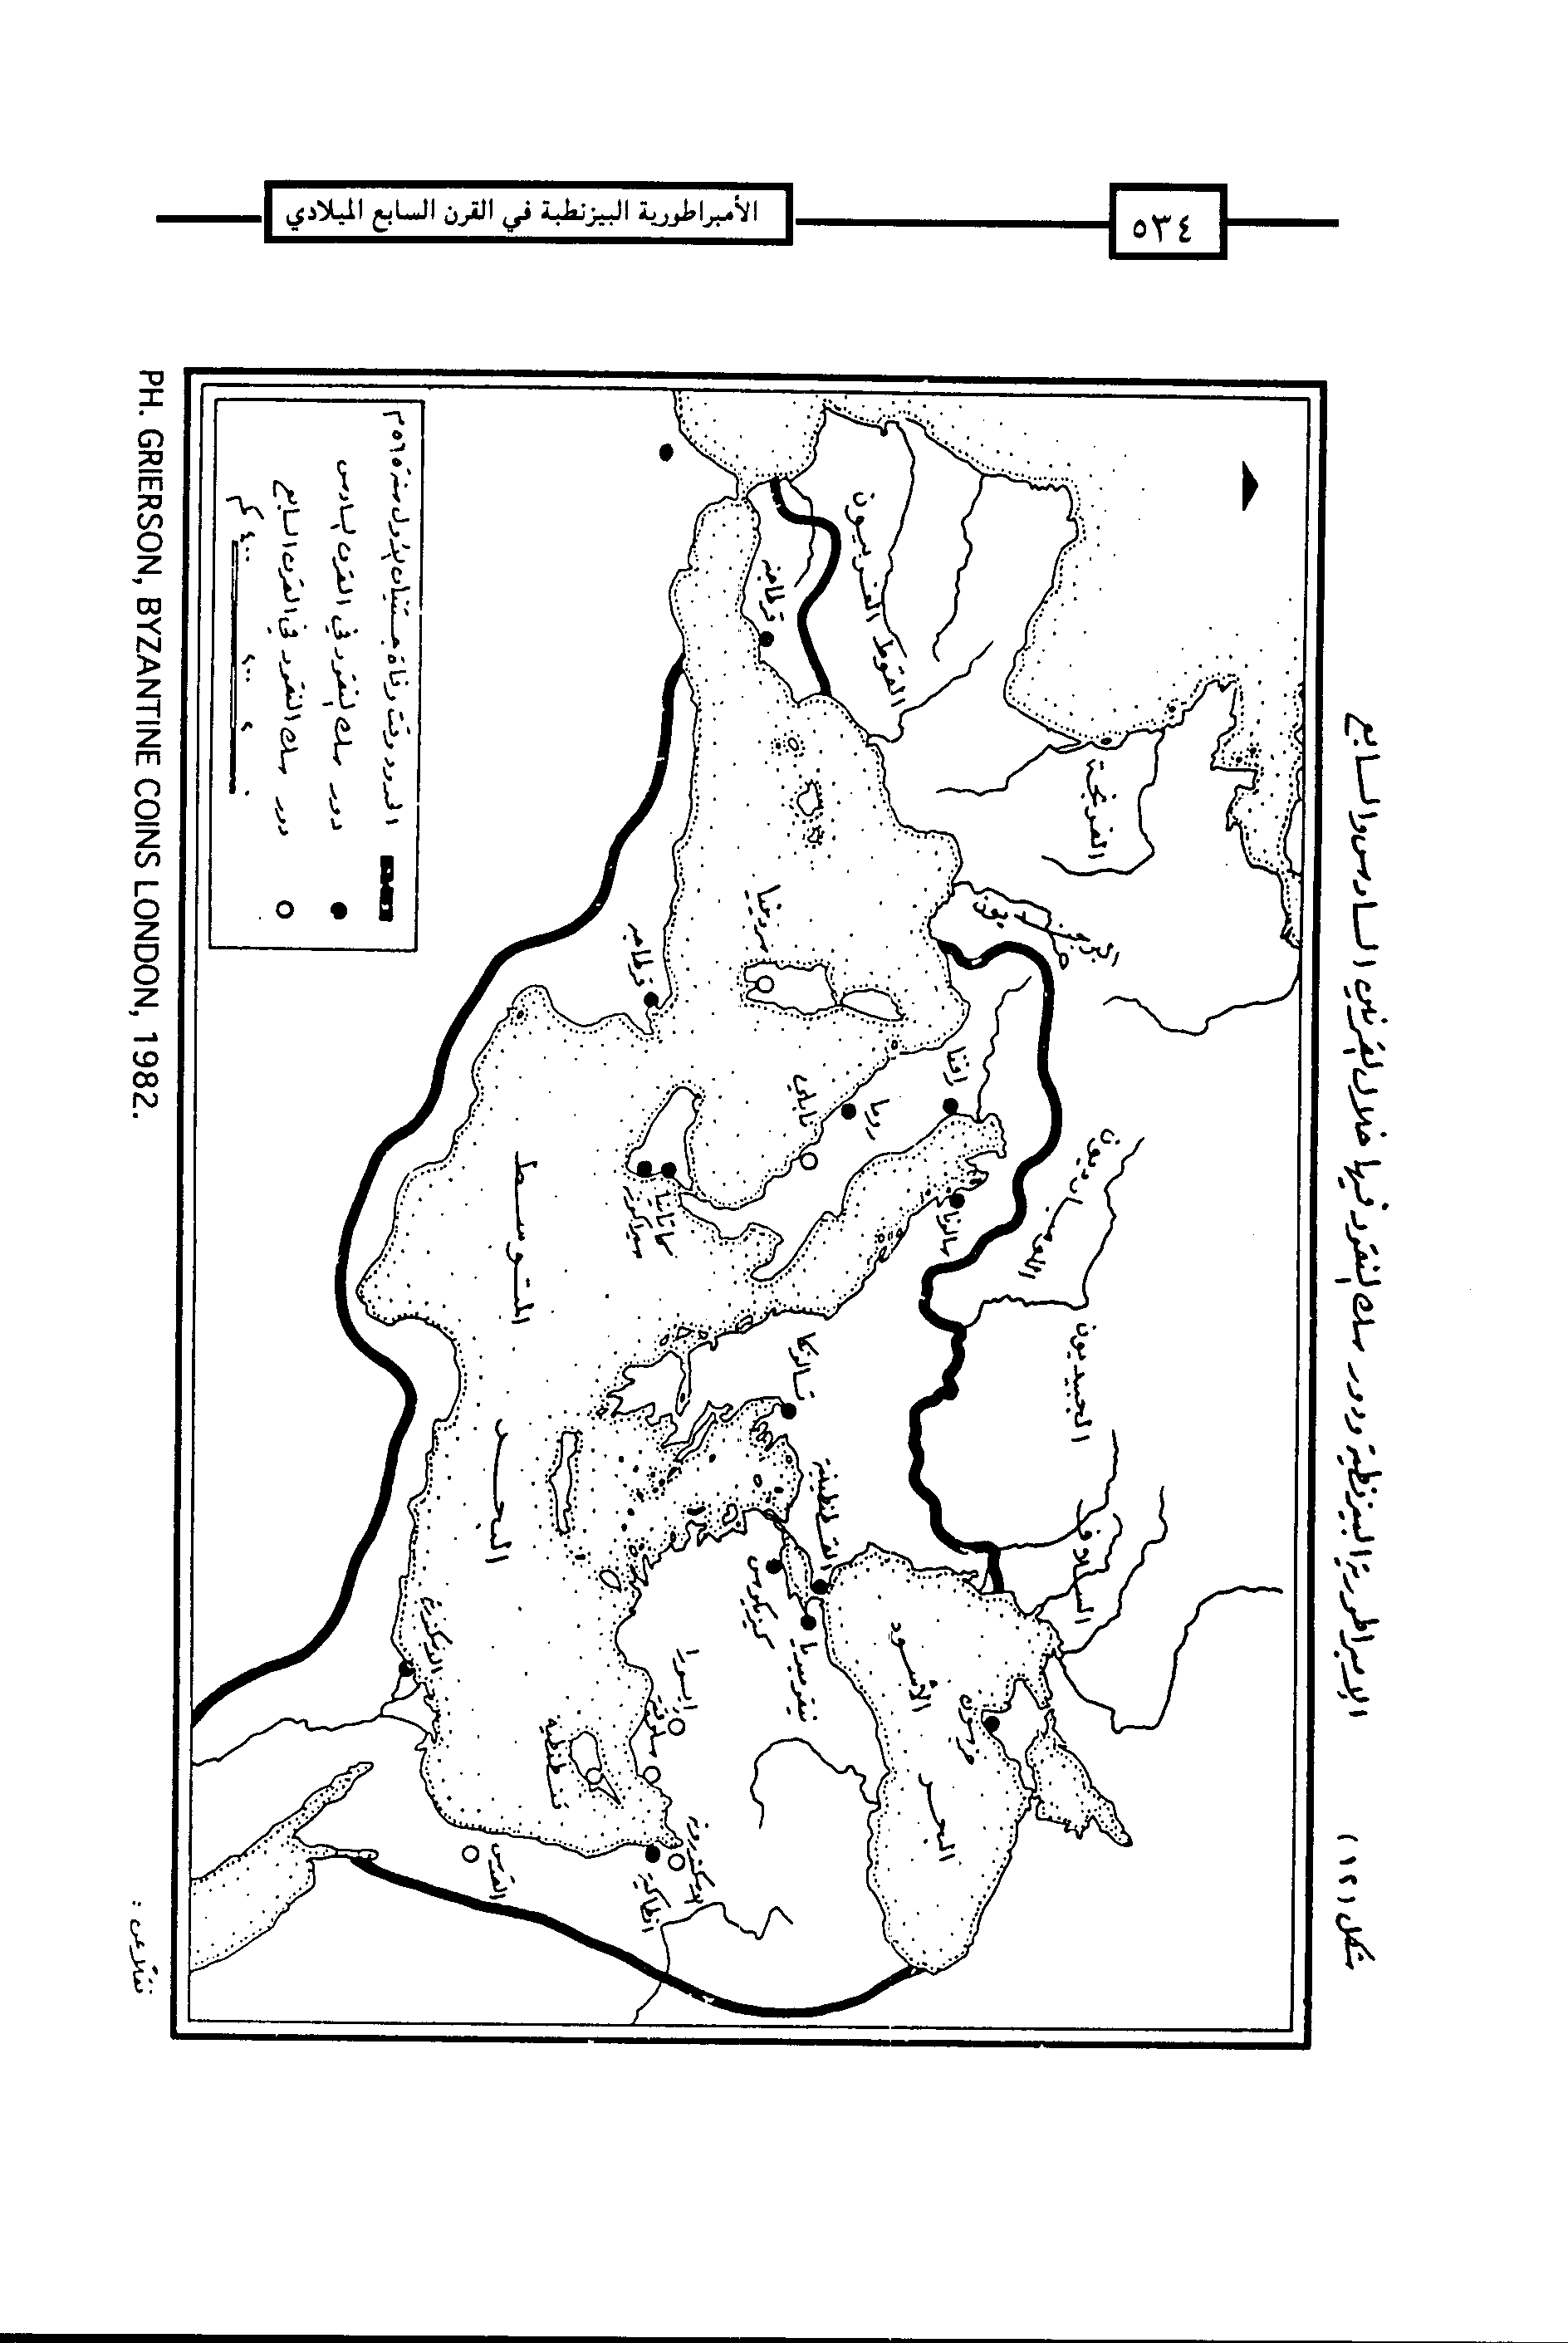 ٥٣٤
الأمبراطورية البيزنطية في القرن السابع الميلادي
شكل (١٢)
الإمبراطورية البيزنطية ودور سك النقود فيها خلال القرنين السادس والسابع
القوط الغربيون
الفرنجة
البرجنديون
اللومبارديون
الجبيديون
السلاف
قرطاجنة
سردينيا
قرطاجة
رافنا
روما
نابلي
سالونا
كاتانيا
سيراكوز
تسالونيكا
القسطنطينية
كيزيكوس
نيقوميديا
خرسون
البحر
الأسود
البحر
المتوسط
الإسكندرية
ايسورا
سلوقية
قسطنطنية
الاسكندرونة
انطاكية
القدس
الحدود وقت وفاة جستنيان الأول سنة ٥٦٥م
دور سك النقود في القرن السادس
دور سك النقود في القرن السابع
٤٠٠ كم
٢٠٠
٠
نقلا عن :
PH. GRIERSON, BYZANTINE COINS LONDON, 1982.